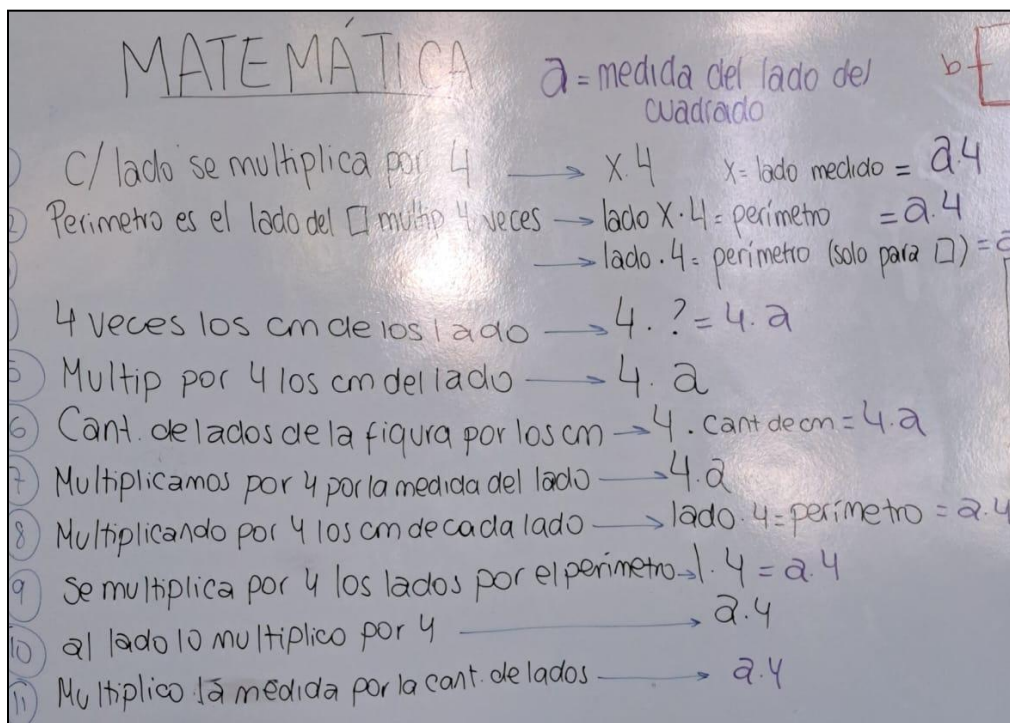 MATEMÁTICA
a = medida del lado del
cuadrado
b
C/ lado se multiplica por 4 → X.4 X = lado medido = a.4
2) Perimetro es el lado del □ multip 4 veces → lado X.4 = perímetro = a.4
→ lado.4 = perímetro (solo para □) =
4 veces los cm de los lado → 4.? = 4.a
5) Multip por 4 los cm del lado → 4.a
6) Cant. de lados de la figura por los cm → 4. cant de cm = 4.a
7) Multiplicamos por 4 por la medida del lado → 4.a
8) Multiplicando por 4 los cm de cada lado → lado.4 = perímetro = a.4
9) Se multiplica por 4 los lados por el perimetro → l.4 = a.4
10) al lado lo multiplico por 4 → a.4
11) Multiplico la medida por la cant. de lados → a.4